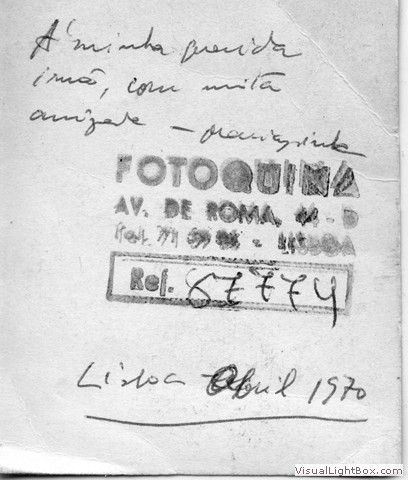 A' minha querida
irmã, com muita
amizade —
FOTOQUINA
AV. DE ROMA, - D
Tel. - LISBOA
Ref. 67774
Lisboa Abril 1970
VisualLightBox.com